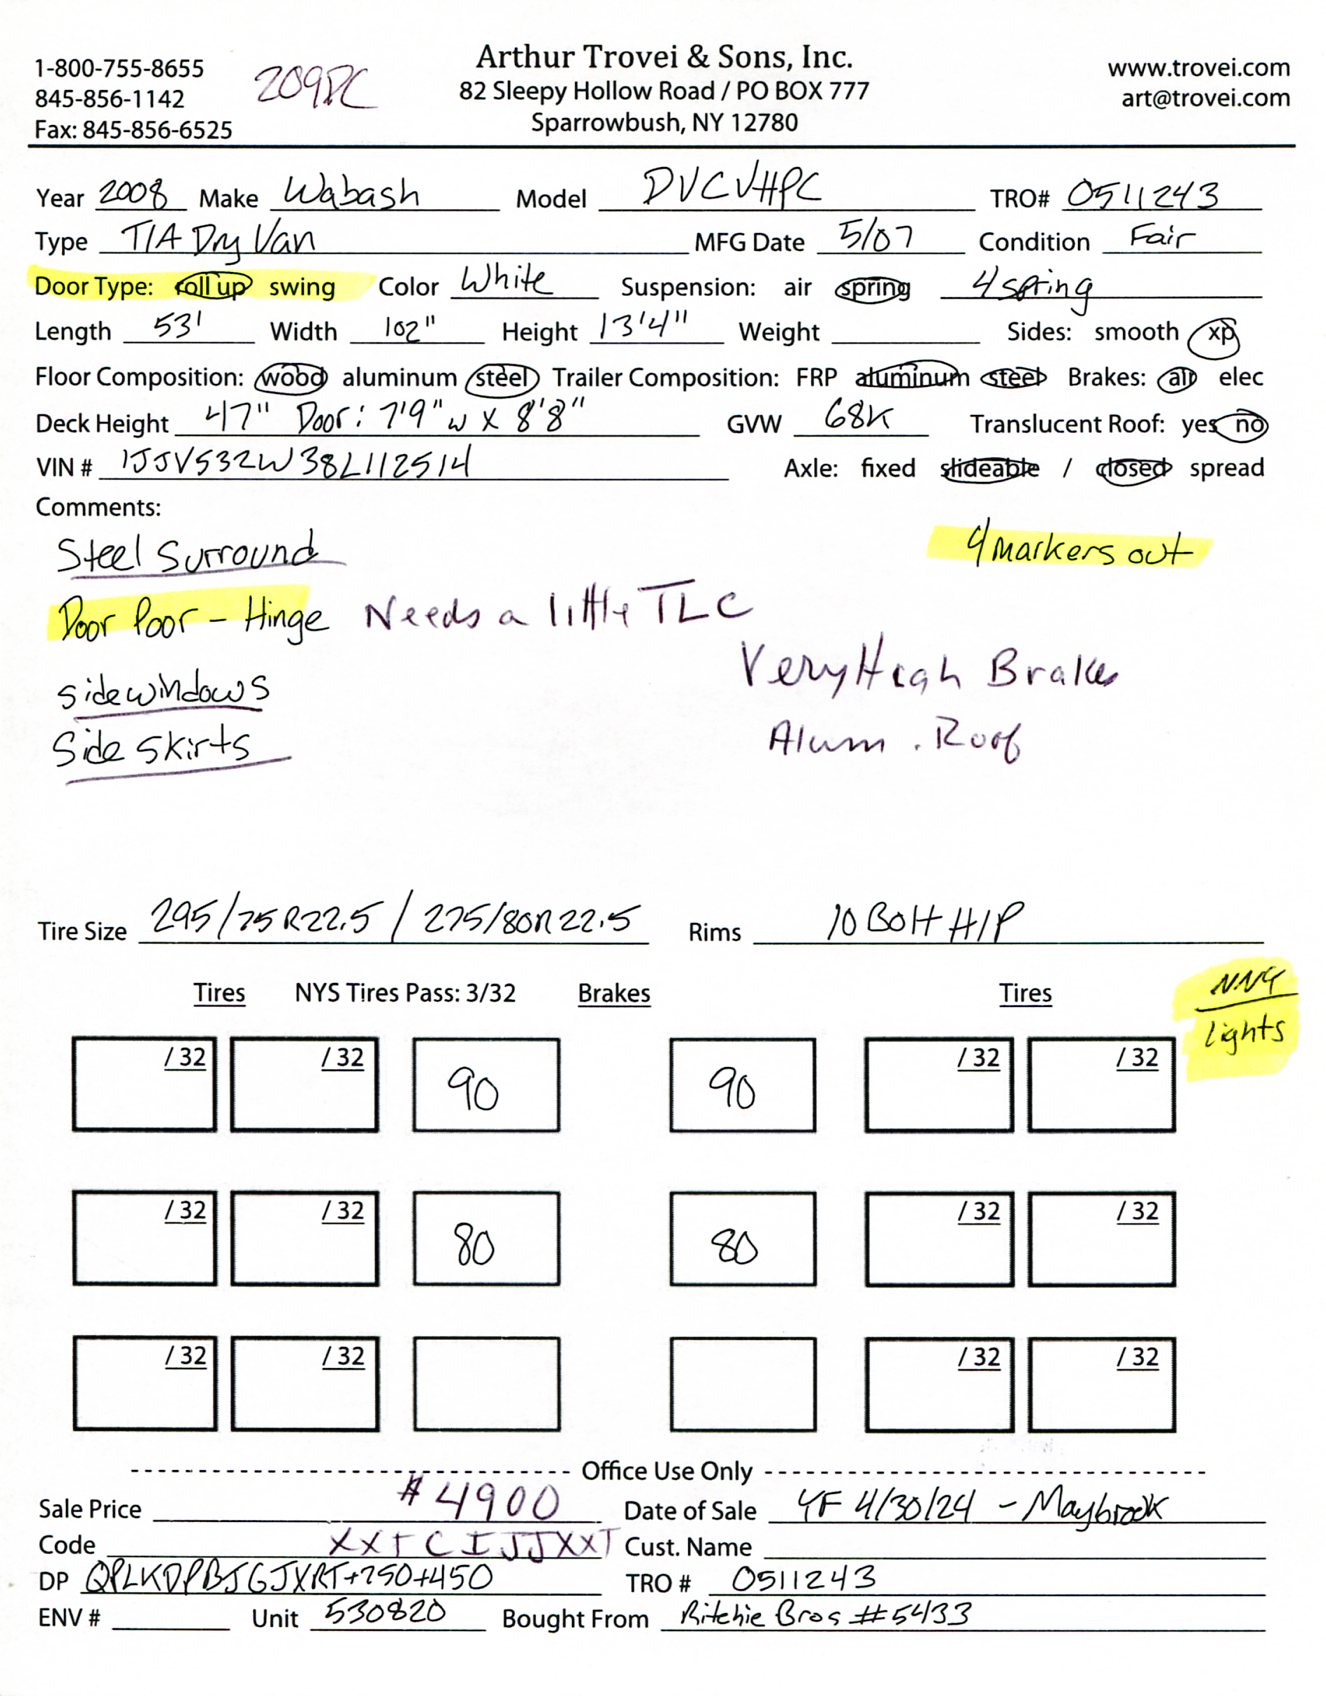 Arthur Trovei & Sons, Inc.
1-800-755-8655 82 Sleepy Hollow Road / PO BOX 777 www.trovei.com
845-856-1142 209DC Sparrowbush, NY 12780 art@trovei.com
Fax: 845-856-6525
Year 2008 Make Wabash Model DVCVHPC TRO# 0511243
Type T/A Dry Van MFG Date 5/07 Condition Fair
Door Type: roll up swing Color White Suspension: air spring 4 spring
Length 53' Width 102" Height 13'4" Weight Sides: smooth xp
Floor Composition: wood aluminum steel Trailer Composition: FRP aluminum steel Brakes: air elec
Deck Height 47" Door: 7'9" w x 8'8" GVW 68K Translucent Roof: yes no
VIN # 1JJV532W38L112514 Axle: fixed slideable / closed spread
Comments:
Steel Surround 4 markers out
Door Poor - Hinge Needs a little TLC
Very High Brakes
side windows
Alum. Roof
Side Skirts
Tire Size 295/75R22.5 / 275/80R22.5 Rims 10 Bolt H/P
Tires NYS Tires Pass: 3/32 Brakes Tires NNY
lights
/ 32 / 32 90 90 / 32 / 32
/ 32 / 32 80 80 / 32 / 32
/ 32 / 32 / 32 / 32
Office Use Only
Sale Price #4900 Date of Sale YF 4/30/24 - Maybrook
Code XXTCIJJXXT Cust. Name
DP QPLKDPBJGJXRT+250+450 TRO # 0511243
ENV # Unit 530820 Bought From Ritchie Bros #5433